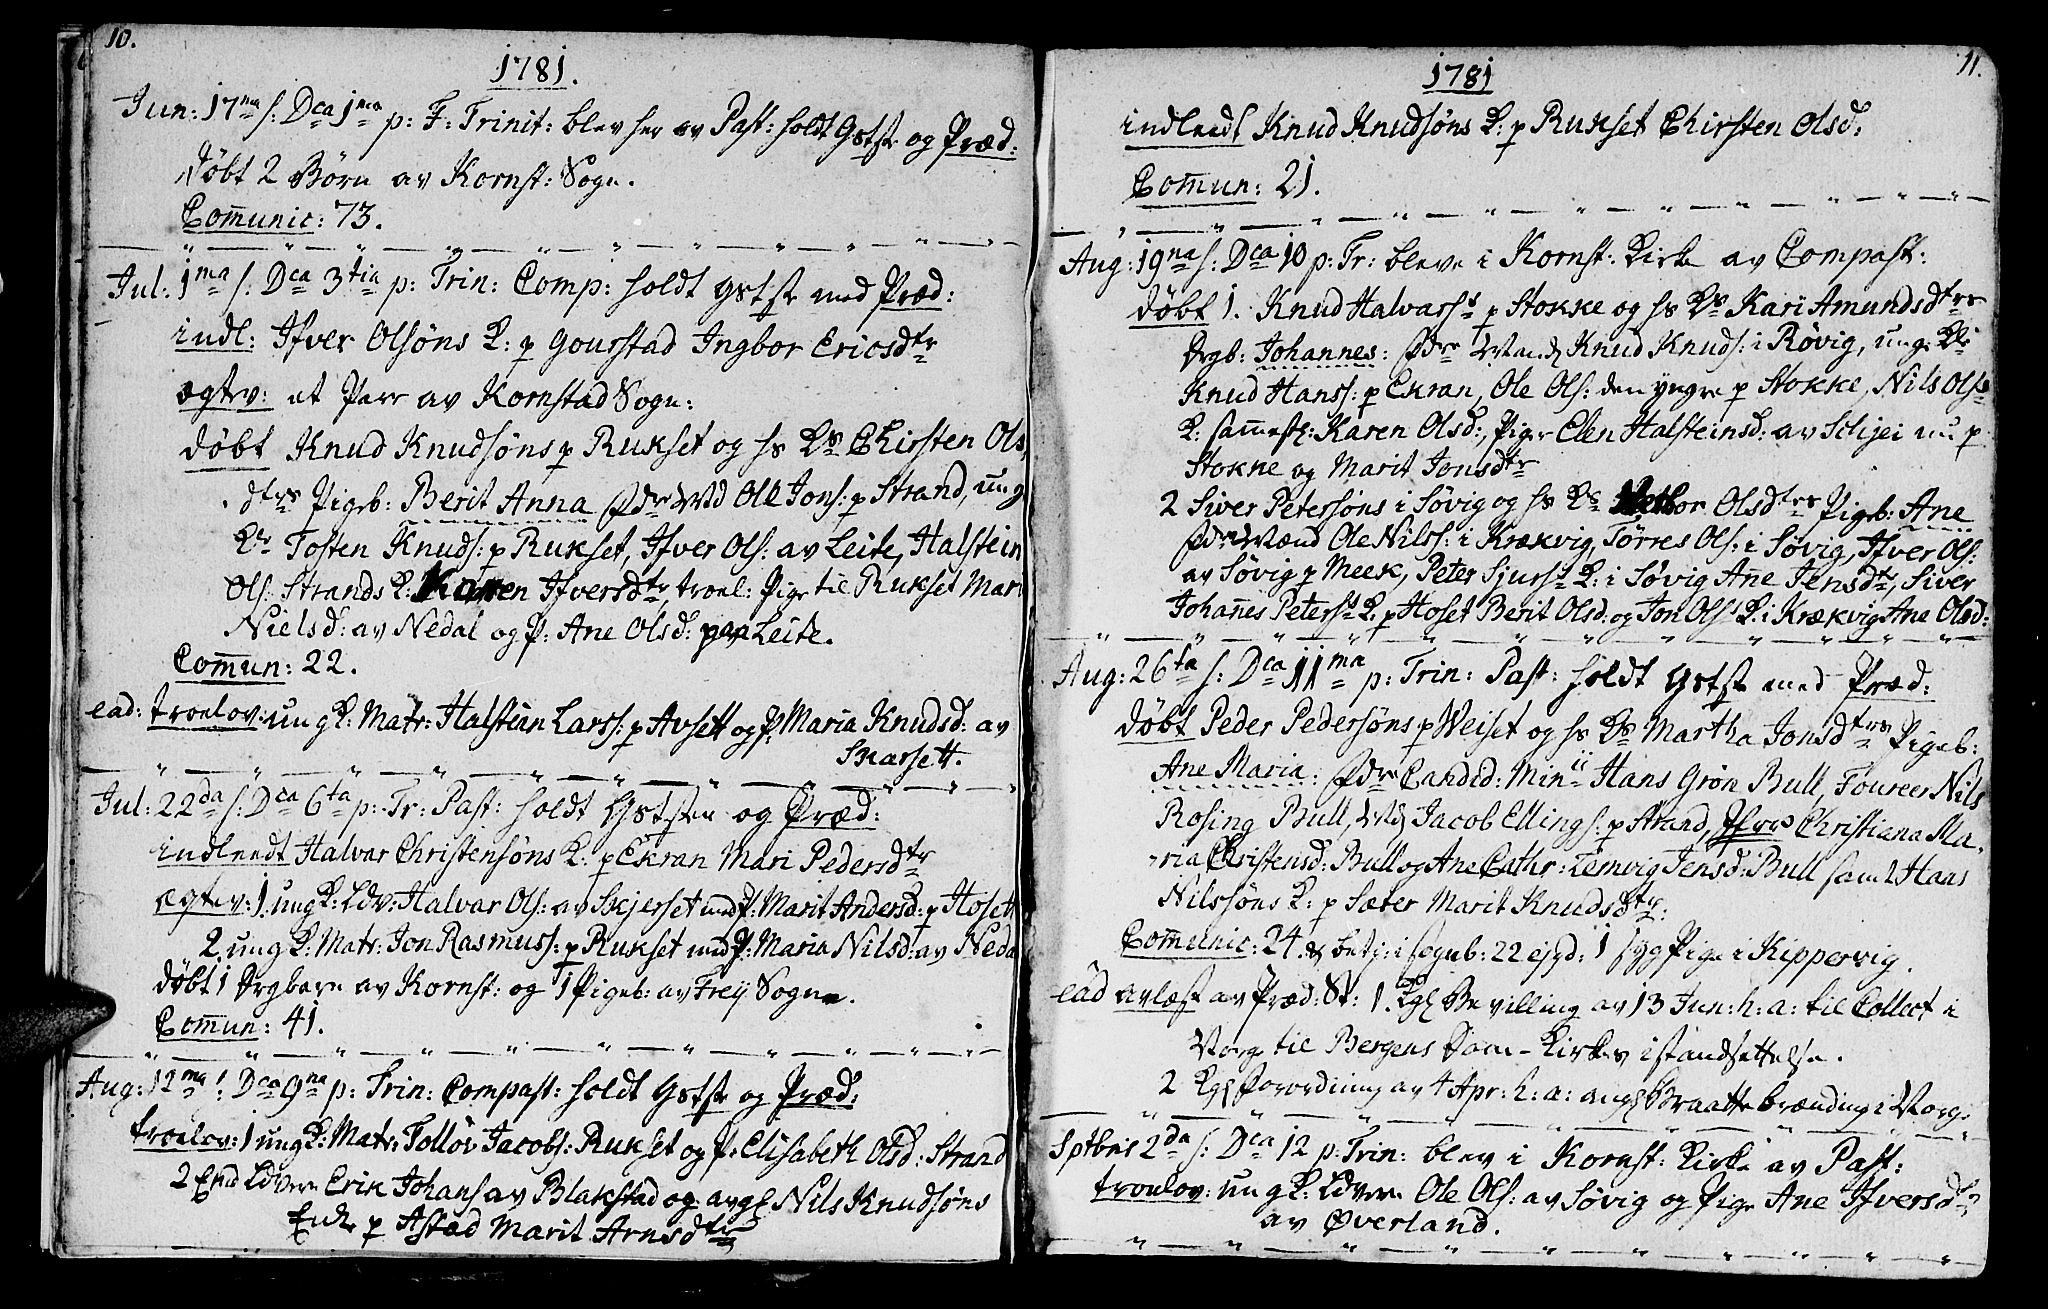 10.
1781.
Jun: 17na s: Dca 1ma p: F: Trinit: blev her av Past: holdt Gstste og Præd:
døbt 2 Børn av Kornst: Sogn.
Comunic: 73.
Jul: 1ma s: Dca 3tia p: Trin: Comp: holdt Gstste med Præd:
indl: Ifver Olsøns K: p Gourstad Ingbor Ericsdtr
ægtev: et Parr av Kornstad Sogn:
døbt Knud Knudsøns p Rukset og hs Ks Chirsten Ols,
dtrs Pigeb: Berit Anna Fdre Md Ole Jons: p Strand, ung
Kr Tosten Knuds: p Rukset, Ifver Ols: av Leite, Halstein
Ols: Strands K: Karen Ifversdtr, troel: Pige til Rukset Mari
Nielsd: av Nedal og P: Ane Olsd: paa Leite.
Comun: 22.
ead: troelov: ung K: Matr: Halstein Larss: p Avsett og P: Maria Knudsd: av
Skarsett.
Jul: 22da s: Dca 6ta p: Tr: Past: holdt Gststen og Præd:
indleedt Halvar Christensøns K: p Ekran Mari Pedersdtr
ægtev: 1. ung K: Ldv: Halvar Ols: av Skjerset med P: Marit Andersd: p Hoset
2. ung K: Matr: Jon Rasmuss: p Rukset med P: Maria Nilsd: av Neda
døbt 1 Drgbarn av Kornst: og 1 Pigeb: av Freij Sogne.
Comun: 41.
Aug: 12ma s: Dca 9na p: Trin: Compast: holdt Gstste og Præd:
troelov: 1 ung K: Matr: Tolløv Jacobs: Rukset og P: Elisabeth Olsd: Strand
2 Enk Ldvern Erik Johans av Blakstad og avgl Nils Knudsøns
Enke p Astad Marit Arnsdtr
11.
1781
indleedt Knud Knudsøns K: p Rukset Chirsten Olsd:
Comun: 21.
Aug: 19na s: Dca 10 p: Tr: bleve i Kornst: Kirke av Compast:
døbt 1. Knud Halvarss p Stokke og hs Ks Kari Amundsdtrs
Drgb: Johannes: Fdre Mand Knud Knuds: i Røvig, ung Kle
Knud Hanss: p Ekran, Ole Ols: den yngre p Stokke, Nils Olss
K: samestd: Karen Olsd:, Piger Elen Halsteinsd: av Schjei nu p
Stokke og Marit Jonsdtr
2 Siver Petersøns i Søvig og hs Ks Olsdtrs Pigeb: Ane
Fdre Mænd Ole Nilss: i Krækvig, Tørres Ols: i Søvig, Ifver Ols:
av Søvig p Meek, Peter Sjurss K: i Søvig Ane Jensdtr, Siver
Johannes Peterss K: p Hoset Berit Olsd: og Jon Ols K: i Krækvig Ane Olsd:
Aug: 26ta s: Dca 11ma p: Trin: Past: holdt Gstste med Præd:
døbt Peder Pedersøns p Weiset og hs Ks Martha Jonsdtrs Pigeb:
Ane Maria: Fdre Candid: Minii Hans Grøn Bull, Foureer Nils
Rosing Bull, Md Jacob Ellings: p Strand, Jfrr Christiana Ma,
ria Christensd: Bull og Ane Cathr: Lemvig Jensd: Bull samt Hans
Nilssøns K: p Sæter Marit Knudsdtr:
Comunic: 24. & betj: i sognb: 22 ejsd: 1 syg Pige i Kippervig.
ead avlæst av Præd: St: 1. Kgl Bevilling av 13 Jun: h: a: til Collect i
Norge til Bergens Dom-Kirkes istandsettelse.
2 Kgl Forordning av 4 Apr: h: a: angl Braattebrænding i Norge
Sptbris 2da s: Dca 12 p: Trin: blev i Kornst: Kirke av Past:
troelov: ung K: Ldvern Ole Ols: av Søvig og Pige Ane Ifversdtr
av Øverland.